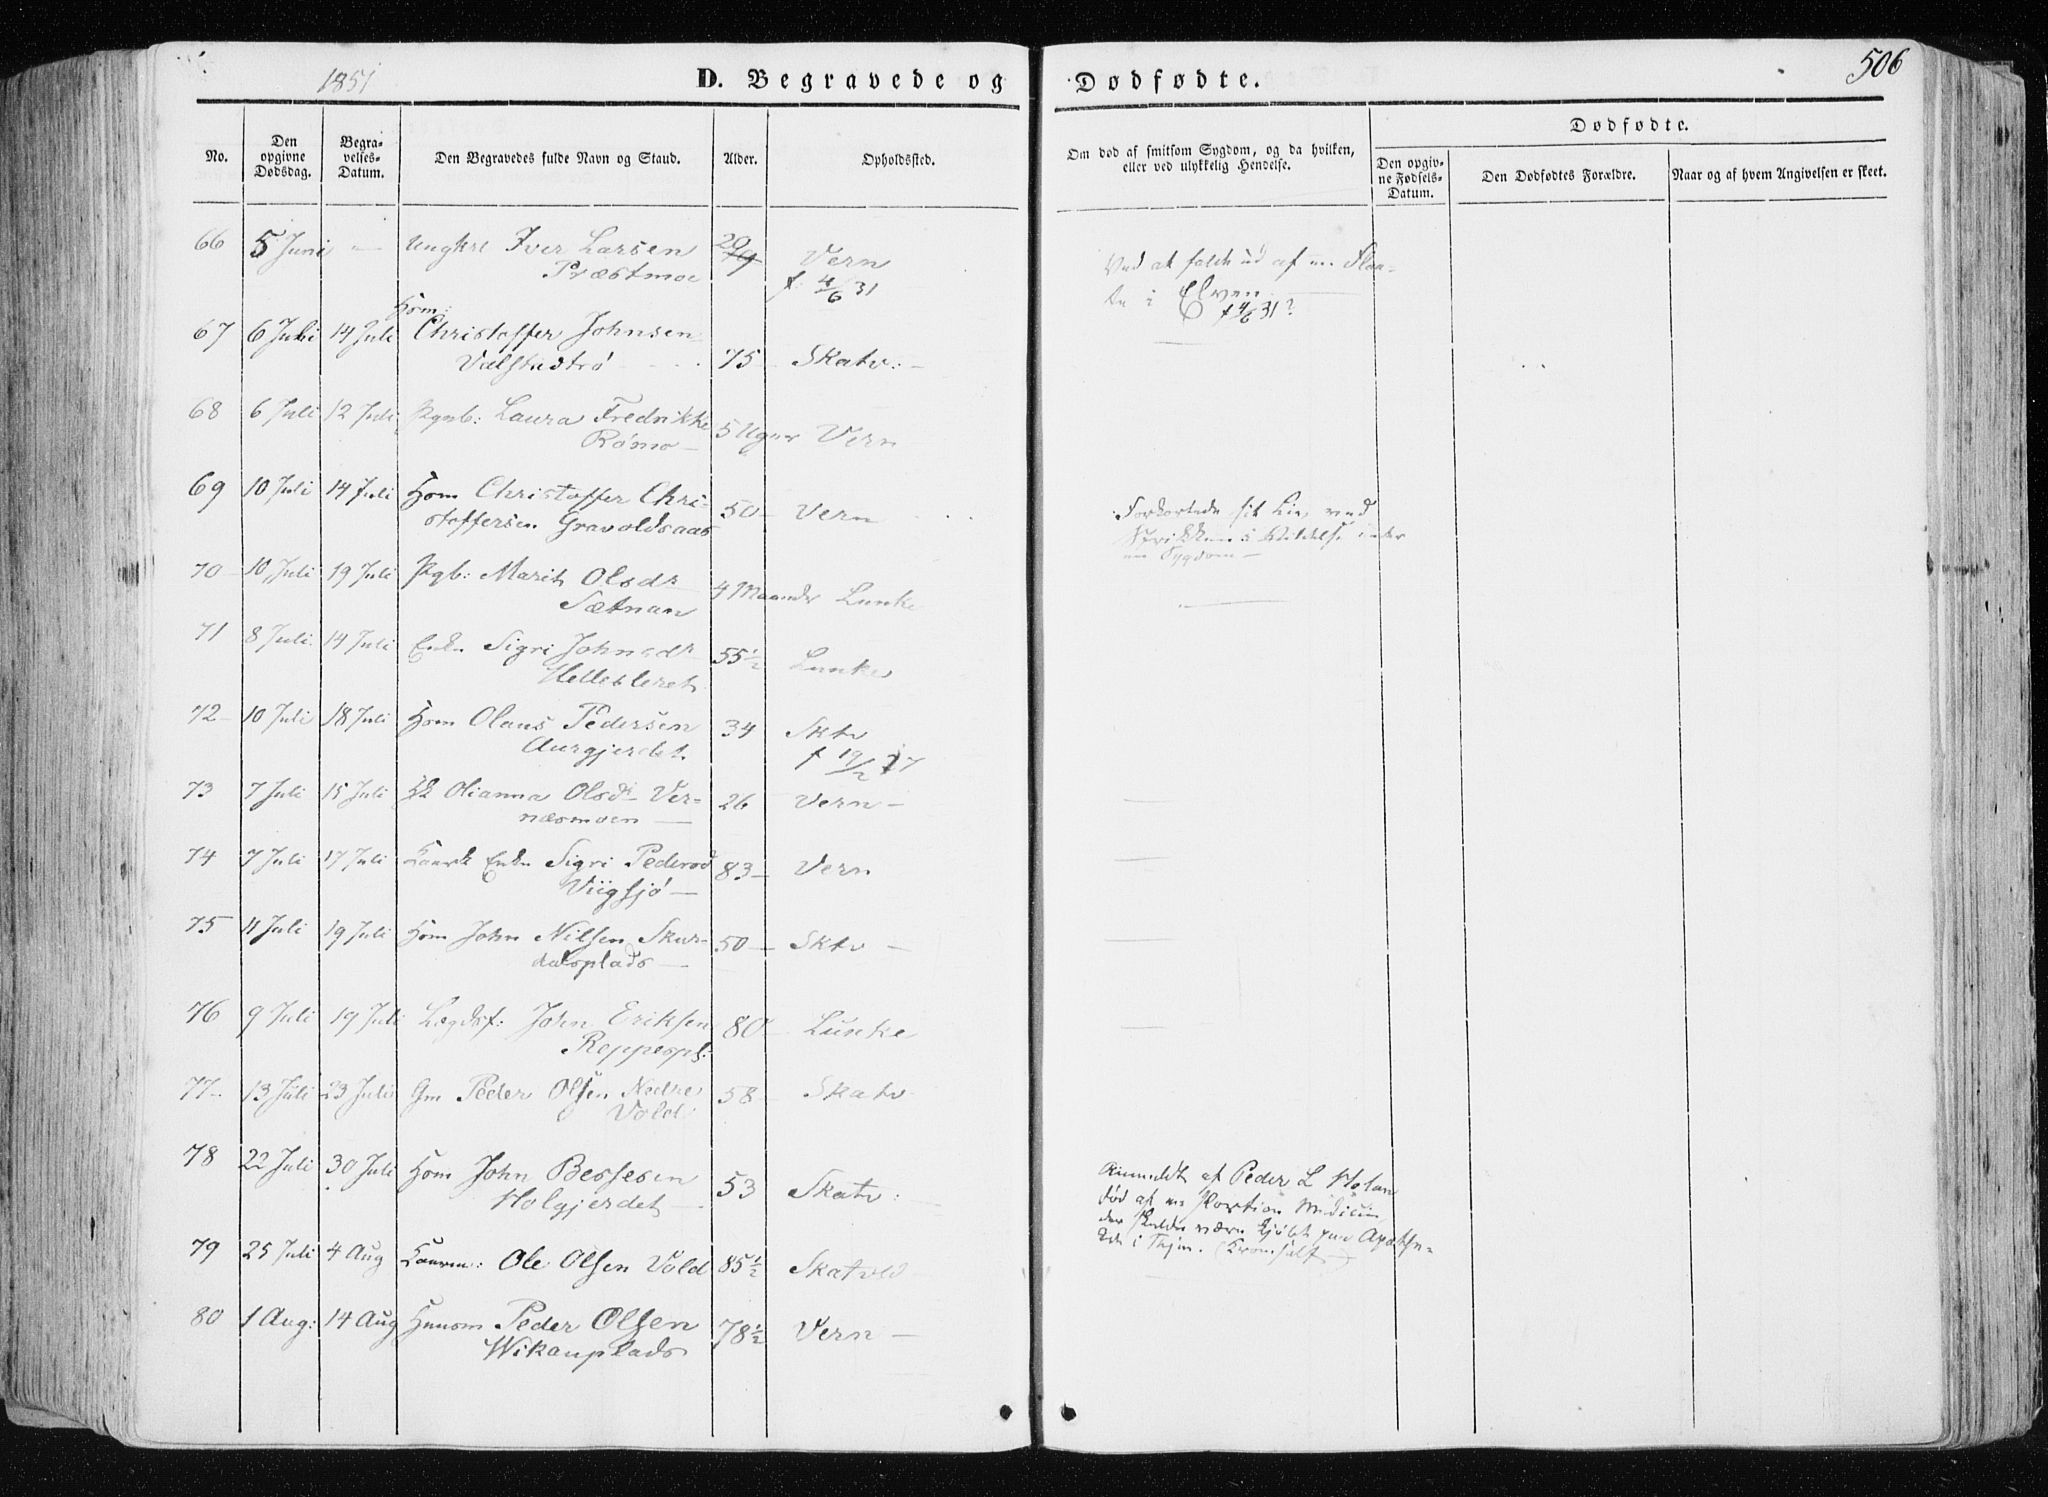 506
1851
D. Begravede og Dødfødte.
No.
Den opgivne Dødsdag.
Begravelses-Datum.
Den Begravedes fulde Navn og Stand.
Alder.
Opholdsted.
Om død af smitsom Sygdom, og da hvilken, eller ved ulykkelig Hendelse.
Dødfødte.
Den opgivne Fødsels-Datum.
Den Dødfødtes Forældre.
Naar og af hvem Angivelsen er skeet.
66 5 Juni — Ungkrl Iver Larsen 20 Vern Ved at falde ud af en Flaa-
Præstmoe f. 4/6 31 de i Elven
f 4/6 31?
Hom:
67 6 Juli 14 Juli Christoffer Johnsen
Valstadtrø 75 — Skatv: —
68 6 Juli 12 Juli Pgb: Laura Fredrikke
Rømo — 5 Uger Vern
69 10 Juli 14 Juli Hom Christoffer Chri- 50 — Vern Forkortede sit Liv ved
stoffersen Gravoldsaas
Sygdom —
70 — 10 Juli 19 Juli Pgb: Marit Olsdr
Sætnan 4 Maaneder Lunke
71 8 Juli 14 Juli Enke Sigri Johnsdr 55½ Lunke
Hellesleret
72 — 10 Juli 18 Juli Hom Olaus Pedersen 34 Sktv
Aurgjerdet. f 19/2 17
73 7 Juli 15 Juli Olianna Olsdr Ver- 26 — Vern —
næsmoen —
74 7 Juli 17 Juli Enke Sigri Pedersd 83 — Vern
Viigsjø —
75 11 Juli 19 Juli Hom John Nilsen Skur- 50 — Sktv —
dalsplads —
76 9 Juli 19 Juli Lægdsf: John Eriksen 80 — Lunke
Reppespl:
77 — 13 Juli 23 Juli Gm Peder Olsen Nedre 58 — Skatv
Vold
78 22 Juli 30 Juli Hom John Bessesen 53 Skatv: Anmeldt af Peder L Holan
Holgjerdet — Død af en Portion Medicin
der skulde være kjøbt paa Apothe-
ket i Thjm. (
79 25 Juli 4 Aug Kaarm: Ole Olsen Vold 85½ Skatvold
80 1 Aug: 14 Aug Huusm Peder Olsen 78½ Vern —
Wikanplads